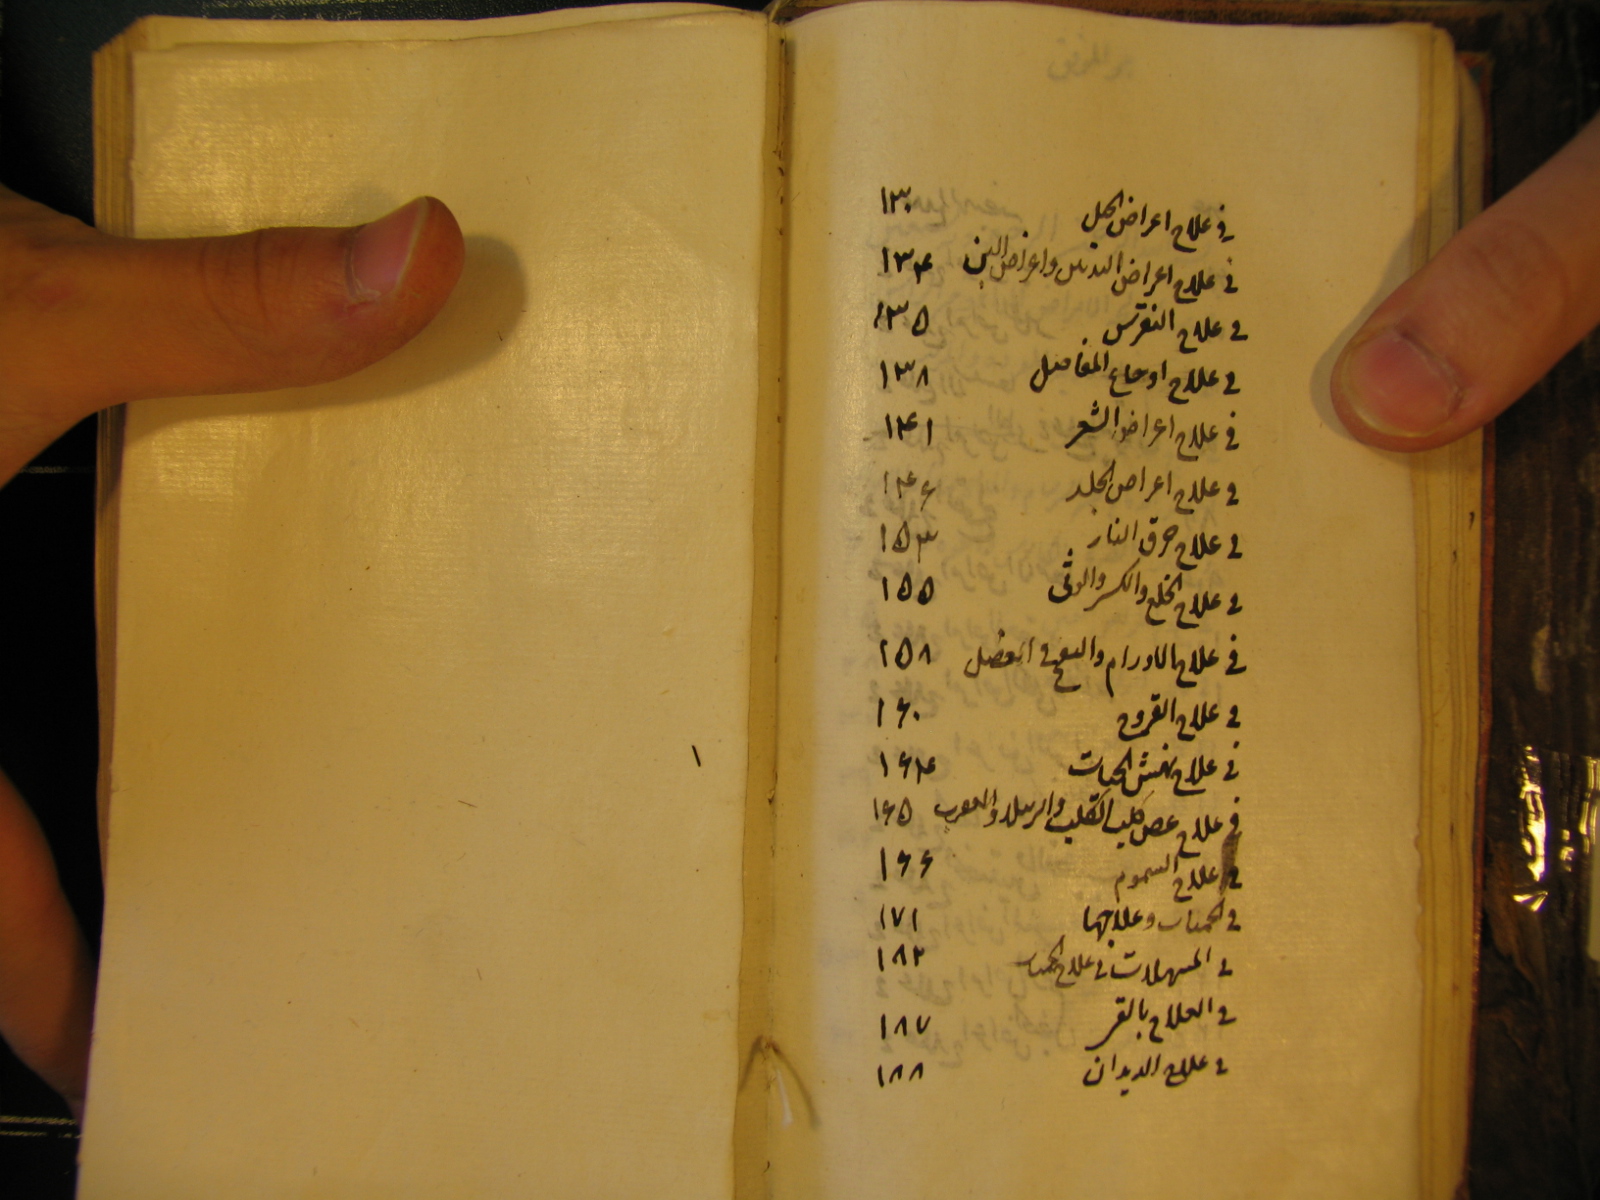 في علاج اعراض الحبل ١٣٠
في علاج اعراض الثديين واعراض اللبن ١٣۴
في علاج النقرس ١٣۵
في علاج اوجاع المفاصل ١٣٨
في علاج اعراض الشعر ١۴١
في علاج اعراض الجلد ١۴۶
في علاج حرق النار ١۵٣
في علاج الخلع والكسر والوثى ١۵۵
في علاج الاورام في ١۵٨
في علاج القروح ١۶٠
في علاج نهش الحيات ١۶۴
في علاج عض كلب الكلب والرتيلا والعقرب ١۶۵
في علاج السموم ١۶۶
في الحميات وعلاجها ١٧١
في المسهلات في علاج الحميات ١٨٢
في العلاج بالقر ١٨٧
في علاج الديدان ١٨٨